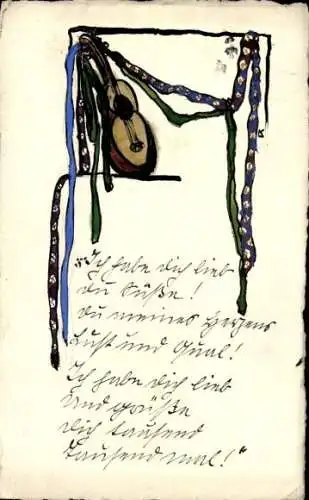 „Ich habe dich lieb
du Süße!
du meines Herzens
Lust und Qual!
Ich habe dich lieb
und grüße
dich tausend
tausend mal!“